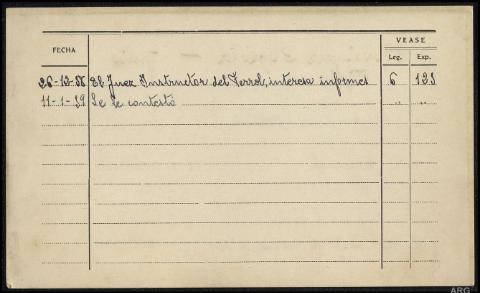 VEASE
FECHA
Leg. Exp.
26-12-38 El Juez Instructor del Ferrol, interesa informes 6 123
11-1-39 Se le contestó " "
ARG